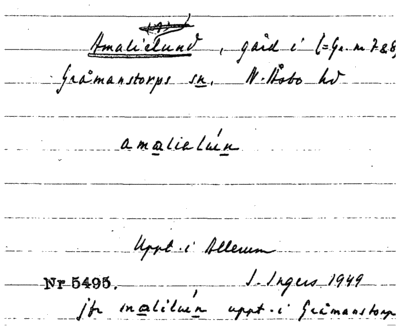 Amalielund, gård i (=Gr. nr 7 & 8)
Gråmanstorps sn. N. Åsbo hd
amalialún
Uppt. i Allerum
Nr 5495. I. Ingers 1949
jfr malilún uppt. i Gråmanstorp